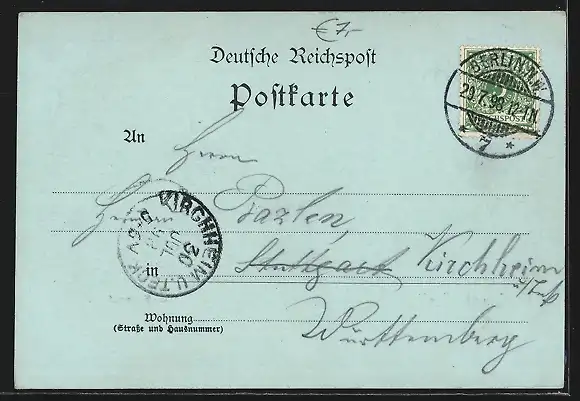 €7,-
Deutsche Reichspost
Postkarte
BERLIN N.W.
29.7.99.12-1N.
* 7 *
REICHSPOST
An
Herrn
Bazlen,
KIRCHHEIM U. TECK
30
JUL
in Stuttgart Kirchheim
Wohnung
(Straße und Hausnummer)
Württemberg